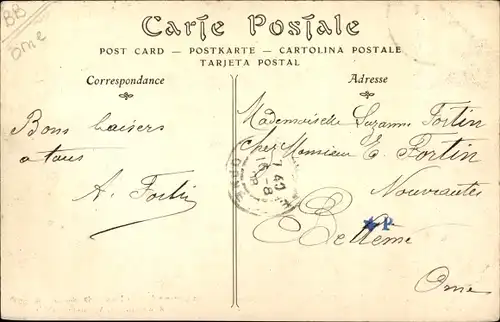 BB
Orne
Carte Postale
POST CARD — POSTKARTE — CARTOLINA POSTALE
TARJETA POSTAL
Correspondance
Adresse
Bons baisers
a tous
A. Fortin
Mademoiselle Suzanne Fortin
Chez Monsieur E. Fortin
Nouveautés
Bellême
Orne
P
ORNE